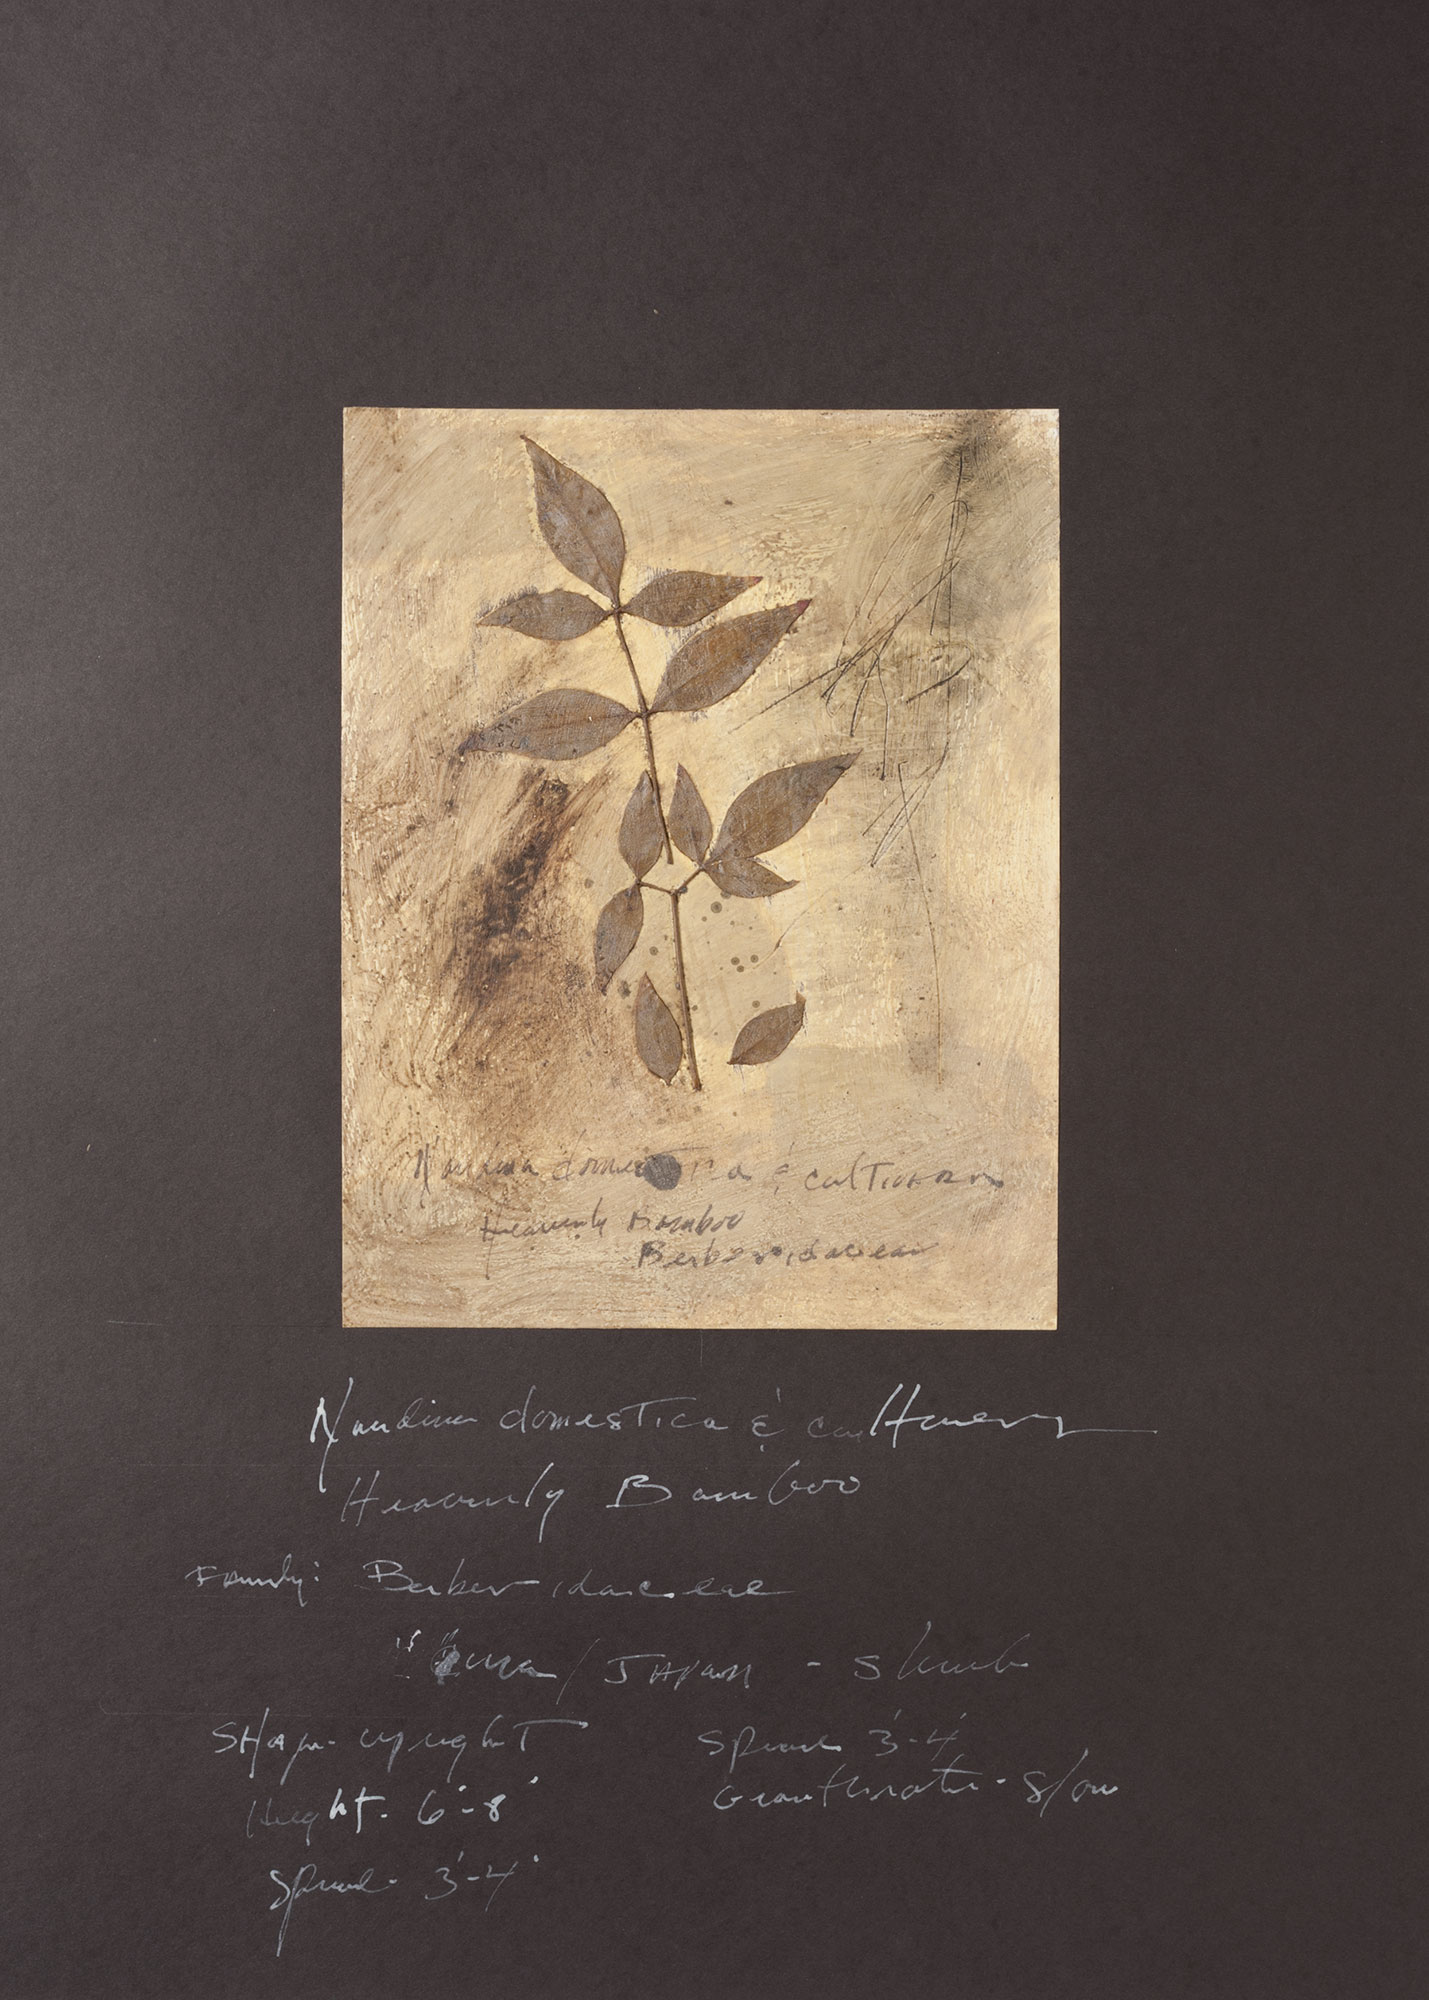 Nandina domestica & cultivars
Heavenly Bamboo
Berberidaceae
Nandina domestica & cultivars
Heavenly Bamboo
Family: Berberidaceae
China / JAPAN - Shrub
SHape - upright
Spread 3'-4'
Height - 6'-8'
Growthrate - Slow
Spread - 3'-4'